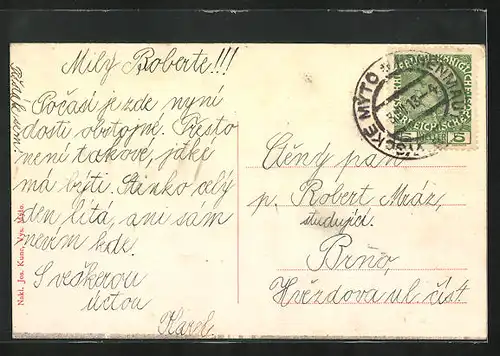 Milý Roberte!!!
Počasí je zde nyní
dosti obstojné. Přesto
není takové, jaké
má býti. Stinko celý
den lítá, ani sám
nevím kde.
S veškerou
úctou
Karel.
Nakl. Jos. Kunc, Vys. Mýto.
VYSOKÉ MÝTO
HOHENMAUTH
5
Ctěný pan
p. Robert Mráz,
studující.
Brno,
Hvězdova ul. čís 4.